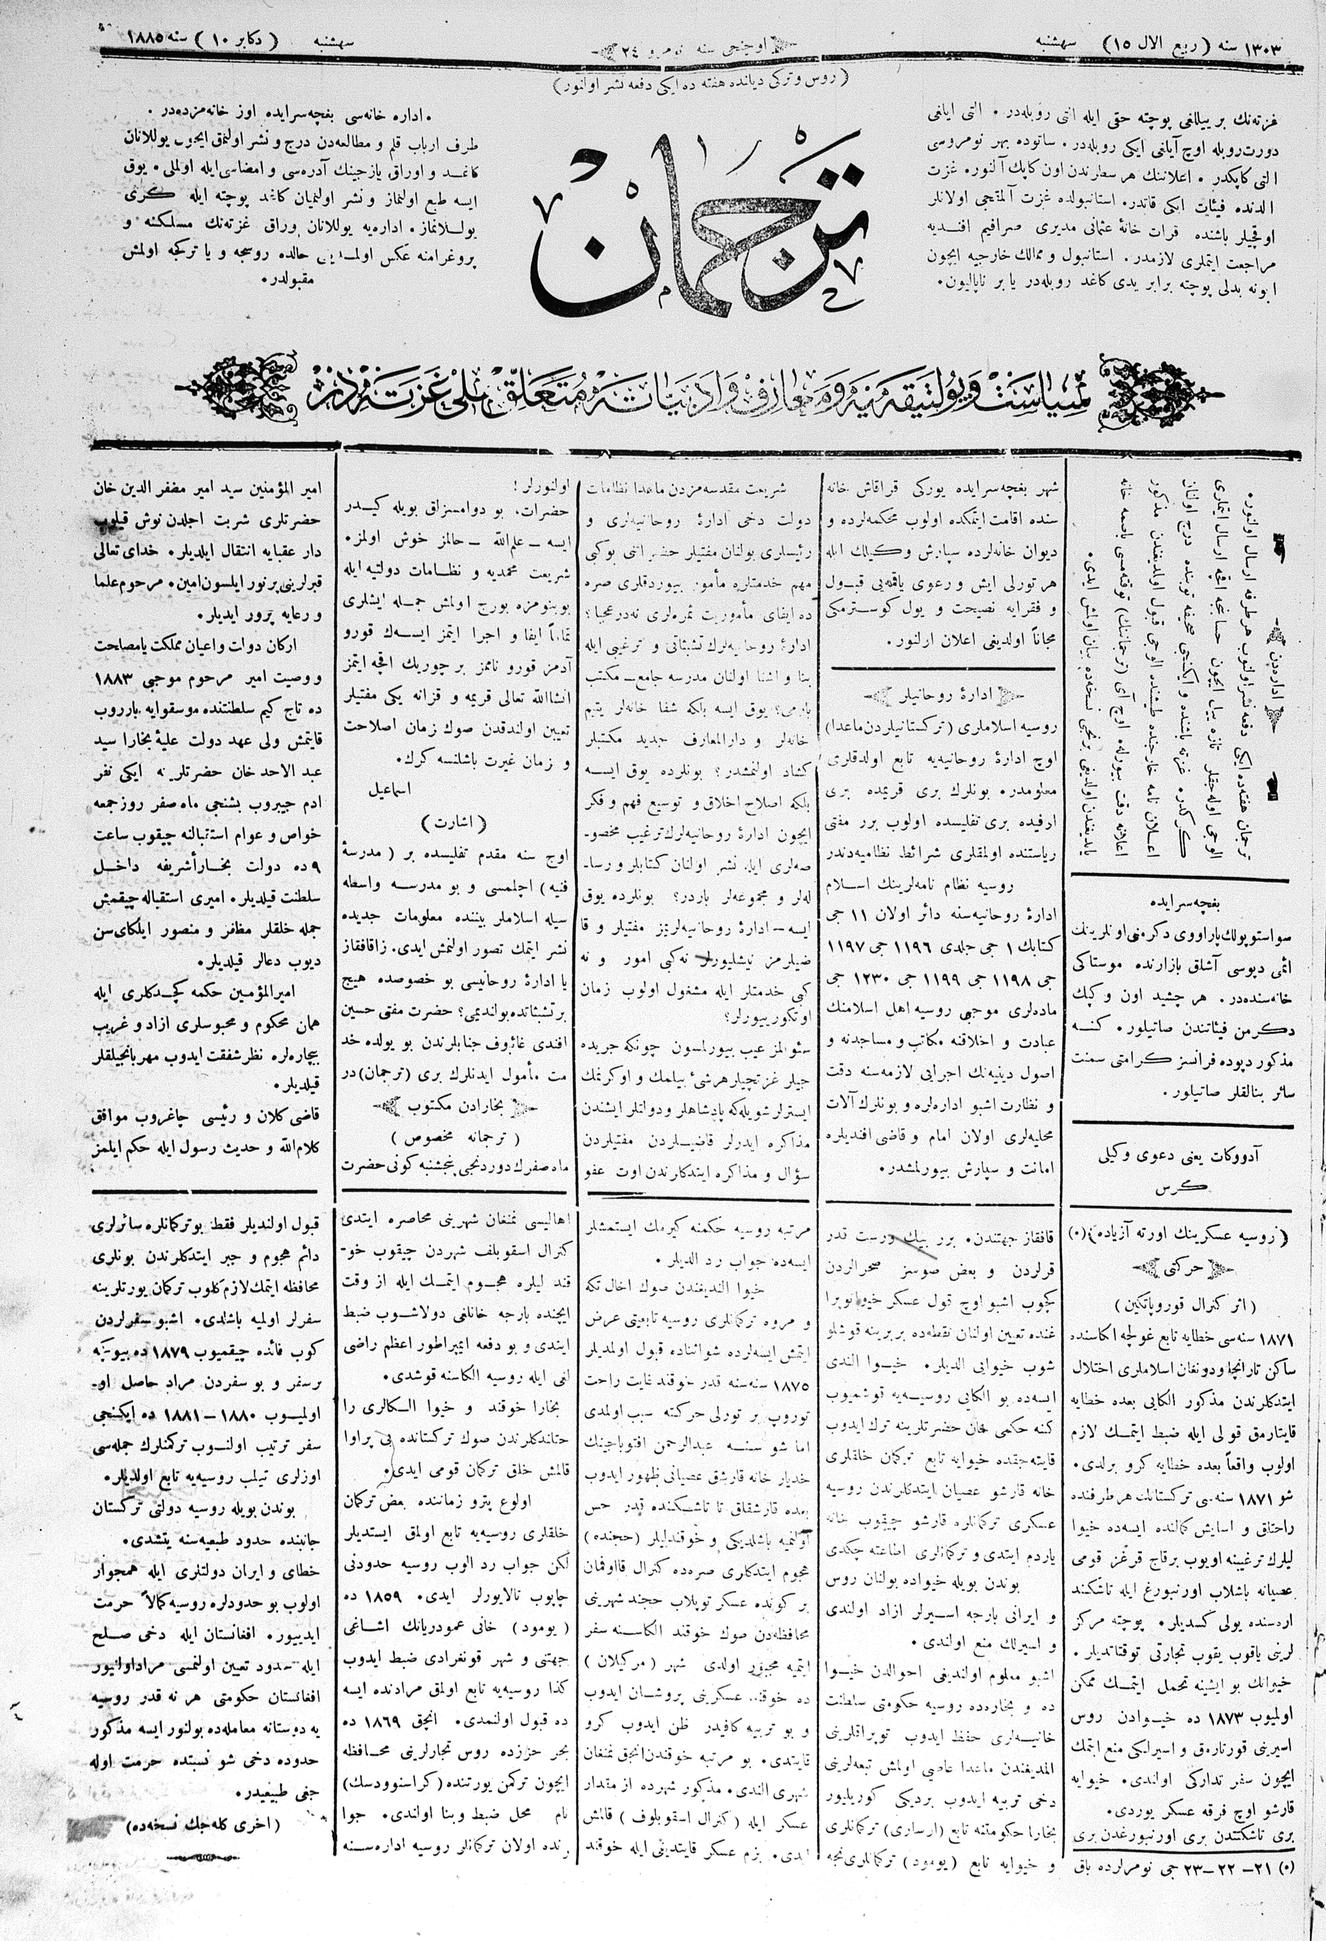 ١٣٠٣ سنه (ربیع الاول ١٥) سه‌شنبه
اوچنجی سنه نومرو ٢٤
سه‌شنبه (دکابر ١٠) سنه ١٨٨٥
(روس و ترکی دیانده هفته ده ایکی دفعه نشر اولنور)
غزته‌نك بر ییللغی پوچته حقی ایله التی روبله‌در. التی ایلغی
دورت روبله اوچ آیلغی ایکی روبله‌در. ساتوده بهر نومروسی
التی کاپکدر. اعلاننك هر سطرندن اون کاپك آلنور. غزت
الدنده فیئات ایکی قاتدر. استانبولده غزت آلمقجی اولانلر
اوقچیلر باشنده قرات خانهٔ عثمانی مدیری صرافیم افندیه
مراجعت ایتملری لازمدر. استانبول و ممالك خارجیه ایچون
ابونه بدلی پوچته برابر یدی کاغد روبله‌در یا بر ناپالیون.
ترجمان
اداره خانه‌سی بغچه‌سرایده اوز خانه‌مزده‌در.
طرف ارباب قلم و مطالعه‌دن درج و نشر اولنمق ایچون یوللانان
کاغد و اوراق یازجینك آدره‌سی و امضاسی ایله اولملی. یوق
ایسه طبع اولنماز و نشر اولنمیان کاغد پوچته ایله کری
یوللانماز. اداره‌یه یوللانان وراق غزته‌نك مسلکنه و
پروغرامنه عکس اولمـ حالده روسجه و یا ترکجه اولمش
مقبولدر.
سیاست و پولتیقه‌یه و معارف و ادبیاته متعلق ملی غزته‌در
اداره‌دن
ترجمان هفته‌ده ایکی دفعه نشر اولنوب هر طرفه ارسال اولنور.
بغچه‌سرایده
سواستوپولك یاراووی دکرمنی اونلرینك
ائمی دپوسی آشلق بازارنده موستاکی
خانه‌سنده‌در. هر چشید اون و کپك
دکرمن فیئاتندن صاتیلور. کنه
مذکور دپوده فرانسز کرامتی سمنت
سائر بنالقلر صاتیلور.
آدووکات یعنی دعوی وکیلی
کرس
شهر بغچه‌سرایده یورکی قراقاش خانه
سنده اقامت ایتمکده اولوب محکمه‌لرده و
دیوان خانه‌لرده سپارش و کیلك ایله
هر تورلی ایش و دعوی یاقمه‌یی قبول
و فقرایه نصیحت و یول کوسترمکی
مجاناً اولدیغی اعلان ارلنور.
ادارهٔ روحانیلر
روسیه اسلاملری (ترکستانیلردن ماعدا)
اوچ ادارهٔ روحانیه‌یه تابع اولدقلری
معلومدر. بونلرك بری قریمده بری
ارفیده بری تفلیسده اولوب برر مفتی
ریاستنده اولمقلری شرائط نظامیه‌دندر
روسیه نظام نامه‌لرینك اسلام
ادارهٔ روحانیه‌سنه دائر اولان ١١ جی
کتابك ١ جی جلدی ١١٩٦ جی ١١٩٧
جی ١١٩٨ جی ١١٩٩ جی ١٢٣٠ جی
ماده‌لری موجبی روسیه اهل اسلامنك
عبادت و اخلاقنه مکاتب و مساجدنه و
اصول دینیه‌نك اجرایی لازمه‌سنه دقت
و نظارت اشبو اداره‌لره و بونلرك آلات
محلیه‌لری اولان امام و قاضی افندیلره
امانت و سپارش بیورلمشدر.
شریعت مقدسه‌مزدن ماعدا نظامات
دولت دخی ادارهٔ روحانیه‌لری و
رئیسلری بولنان مفتیلر حضراتنی بوکبی
مهم خدمتلره مأمور بیوردقلری صره
ده ایفای مأموریت ثمره‌لری نه‌در عجبا؟
ادارهٔ روحانیه‌لرك تشبثاتی و ترغیبی ایله
بنا و انشا اولنان مدرسه جامع ـ مکتب
بارمی؟ یوق ایسه بلکه شفا خانه‌لر یتیم
خانه‌لر و دارالمعارف جدید مکتبلر
کشاد اولنمشدر؟ بونلرده یوق ایسه
بلکه اصلاح اخلاق و توسیع فهم و فکر
ایچون ادارهٔ روحانیه‌لرك ترغیب مخصو-
صه‌لری ایله نشر اولنان کتابلر و رسا-
له‌لر و مجموعه‌لر باردر؟ بونلرده یوق
ایسه ـ ادارهٔ روحانیه‌لریمز مفتیلر و قا
ضیلرمز نیشلیورلر نه‌کبی امور و نه
کبی خدمتلر ایله مشغول اولوب زمان
اوتکوریورلر؟
سئوالمز عیب بیورلمسون چونکه جریده
جیلر غزتچیلر هرشئ بیلمك و اوکرنمك
ایسترلر شویله‌که پادشاهلر و دولتلر ایشندن
مذاکره ایدرلر قاضیلردن مفتیلردن
سؤال و مذاکره ایتدکلرندن اوت عفو
اولنورلر!
حضرات، بو دوامسزلق بویله کیدر
ایسه ـ علم‌الله ـ حالمز خوش اولمز.
شریعت محمدیه و نظامات دولتیه ایله
بوینومزه بورج اولمش جمله ایشلری
تماماً ایفا و اجرا ایتمز ایسه‌ك قورو
آدمز قورو نامز بر چوریك اقچه ایتمز
انشاالله تعالی قریمه و قزانه یکی مفتیلر
تعیین اولندقدن صوك زمان اصلاحت
و زمان غیرت باشلنسه کرك.
اسماعیل
(اشارت)
اوچ سنه مقدم تفلیسده بر (مدرسهٔ
فنیه) اچلمسی و بو مدرسه واسطه
سیله اسلاملر بیننده معلومات جدیده
نشر ایتمك تصور اولنمش ایدی. زاقافقاز
یا ادارهٔ روحانیسی بو خصوصده هیچ
بر تشبثاتده بولندیمی؟ حضرت مفتی حسین
افندی غائبوف جنابلرندن بو یولده خد
مت مأمول ایدنلرك بری (ترجمان) در
بخارادن مکتوب
(ترجمانه مخصوص)
ماه صفرك دوردنجی پنجشنبه کونی حضرت
امیر المؤمنین سید امیر مظفر الدین خان
حضرتلری شربت اجلدن نوش قیلوب
دار عقبایه انتقال ایلدیلر. خدای تعالی
قبرلرینی پر نور ایلسون امین. مرحوم علما
و رعایه پرور ایدیلر.
ارکان دولت و اعیان مملکت یا مصلحت
و وصیت امیر مرحوم موجبی ١٨٨٣
ده تاج کیم سلطنتنده موسقوایه باروب
قایتمش ولی عهد دولت علیهٔ بخارا سید
عبد الاحد خان حضرتلرینه ایکی نفر
ادم جیبروب بشنجی ماه صفر روز جمعه
خواص و عوام استقبالنه چیقوب ساعت
٩ ده دولت بخارأشریفه داخل
سلطنت قیلدیلر. امیری استقباله چیقمش
جمله خلقلر مظفر و منصور ایلکای‌سن
دیوب دعالر قیلدیلر.
امیرالمؤمنین حکمه کچدکلری ایله
همان محکوم و محبوسلری ازاد و غریب
بیچاره‌لره نظر شفقت ایدوب مهربانجیلقلر
قیلدیلر.
قاضی کلان و رئیسی چاغروب موافق
کلام‌الله و حدیث رسول ایله حکم ایلمز
(روسیه عسکرینك اورته آزیاده) (٥)
حرکتی
(اثر کنرال قوروپاتکین)
١٨٧١ سنه‌سی خطایه تابع غولجه الکاسنده
ساکن تارانچی و دونغان اسلاملری اختلال
ایتدکلرندن مذکور الکایی بعده خطایه
قایتارمق قولی ایله ضبط ایتمك لازم
اولوب واقعاً بعده خطایه کرو برلدی.
شو ١٨٧١ سنه‌سی ترکستانك هر طرفنده
راحتلق و اسایش کمالنده ایسه‌ده خیوا
لیلرك ترغیبنه اویوب برقاچ قرغز قومی
عصیانه باشلاب اورنبورغ ایله تاشکند
اردسنده یولی کسدیلر. پوچته مرکز
لرینی یاقوب یقوب تجارتی توقتاتدیلر.
خیوانك بو ایشینه تحمل ایتمك ممکن
اولمیوب ١٨٧٣ ده خیوادن روس
اسیرینی قورتارمق و اسیرلکی منع ایتمك
ایچون سفر تدارکی اولندی. خیوایه
قارشو اوچ فرقه عسکر یوردی.
بری تاشکنتدن بری اورنبورغدن بری
(٥) ٢١ – ٢٢ – ٢٣ جی نومرلرده باق
قافقاز جهتندن. برر بیك ورست قدر
قرلردن و بعض صوسز صحرالردن
کچوب اشبو اوچ قول عسکر خیوا توپرا
غنده تعیین اولنان نقطه‌ده بربرینه قوشلو
شوب خیوایی الدیلر. خیوا الندی
ایسه‌ده بو الکایی روسیه‌یه قوشمیوب
کنه حکمی خان حضرتلرینه ترك ایدوب
قایتمه‌جقده خیوایه تابع ترکمان خلقلری
خانه قارشو عصیان ایتدکلرندن روسیه
عسکری ترکمانلره قارشو چیقوب خانه
یاردم ایتدی و ترکمانلری اطاعته چکدی
بوندن بویله خیواده بولنان روس
و ایرانی بارجه اسیرلر ازاد اولندی
و اسیرلك منع اولندی.
اشبو معلوم اولندیغی احوالدن خیوا
ده و بخاره‌ده روسیه حکومتی سلطانت
خانیه‌لری حفظ ایدوب توپراقلرینی
المدیغندن ماعدا عاصی اولمش تبعه‌لرینی
دخی تربیه ایدوب بردیکی کوریلیور
بخارا حکومتنه تابع (ارساری) ترکمانلری
و خیوایه تابع (یومود) ترکمانلری نچه
مرتبه روسیه حکمنه کیرمك ایستمشلر
ایسه‌ده جواب رد الدیلر.
خیوا الندیغندن صوك اخال تکه
و مروه ترکمانلری روسیه تابعیتی عرض
ایتمش ایسه‌لرده شواثناده قبول اولمدیلر
١٨٧٥ سنه‌سنه قدر خوقند غایت راحت
توروپ بر تورلی حرکته سبب اولمدی
اما شو سنه عبدالرحمن افتوباجینك
خدیار خانه قارشو عصیانی ظهور ایدوب
بعده قارشقلق تا تاشکنده قدر حس
اولنمیه باشلدیکی و خوقندلیلر (حجنده)
هجوم ایتدکلری صره‌ده کنرال قاؤفمان
بر کونده عسکر توپلاب حجند شهرینی
محافظه‌دن صوك خوقند الکاسنه سفر
ایتمیه مجبور اولدی شهر (مرکیلان)
ده خوقند عسکرینی پروشان ایدوب
و بو تربیه کافیدر ظن ایدوب کرو
قایتدی. بو مرتبه خوقندن انجق نمنغان
شهری الندی. مذکور شهرده از مقدار
عسکر ایله (کنرال اسقوبلوف) قالمش
ایدی. بزم عسکر قایتدیغی ایله خوقند
اهالیسی نمنغان شهرینی محاصره ایتدی
کنرال اسقوبلف شهردن چیقوب خو-
قند لیلره هجوم ایتمك ایله از وقت
ایچنده بارجه خانلغی دولاشوب ضبط
ایتدی و بو دفعه ایمپراطور اعظم راضی
لغی ایله روسیه الکاسنه قوشدی.
بخارا خوقند و خیوا الکالری را
حتلندکلرندن صوك ترکستانده بی پراوا
قالمش خلق ترکمان قومی ایدی.
اولوع پترو زماننده بعض ترکمان
خلقلری روسیه‌یه تابع اولمق ایستدیلر
لکن جواب رد الوب روسیه حدودنی
چاپوب تالایورلر ایدی. ١٨٥٩ ده
(یومود) خانی عمودریانك اشاغی
جهتنی و شهر قونغرادی ضبط ایدوب
کذا روسیه‌یه تابع اولمق مرادنده ایسه
ده قبول اولنمدی. انجق ١٨٦٩ ده
بحر حزرده روس تجارلرینی محافظه
ایچون ترکمن یورتنده (کراسنوودسك)
نام محل ضبط و بنا اولندی. جوا
رنده اولان ترکمانلر روسیه اداره‌سنه
قبول اولندیلر فقط بو ترکمانلره سائرلری
دائم هجوم و جبر ایتدکلرندن بونلری
محافظه ایتمك لازم کلوب ترکمان یورتلرینه
سفرلر اولمیه باشلدی. اشبو سفرلردن
کوب فائده چیقمیوب ١٨٧٩ ده بیوك
بر سفر و بو سفردن مراد حاصل او-
اولمیوب ١٨٨٠ – ١٨٨١ ده ایکنجی
سفر ترتیب اولنوب ترکمنلرك جمله‌سی
اوزلری تیلب روسیه‌یه تابع اولدیلر.
بوندن بویله روسیه دولتی ترکستان
جانبنده حدود طبعیه‌سنه یتشدی.
خطای و ایران دولتلری ایله همجوار
اولوب بو حدودلره روسیه کمالاً حرمت
ایدییور. افغانستان ایله دخی صلح
ایله حدود تعیین اولنمسی مراد اولنیور
افغانستان حکومتی هر نه قدر روسیه
یه دوستانه معامله‌ده بولنور ایسه مذکور
حدوده دخی شو نسبتده حرمت اوله
جغی طبیعیدر.
(اخری کله‌جك نسخه‌ده)